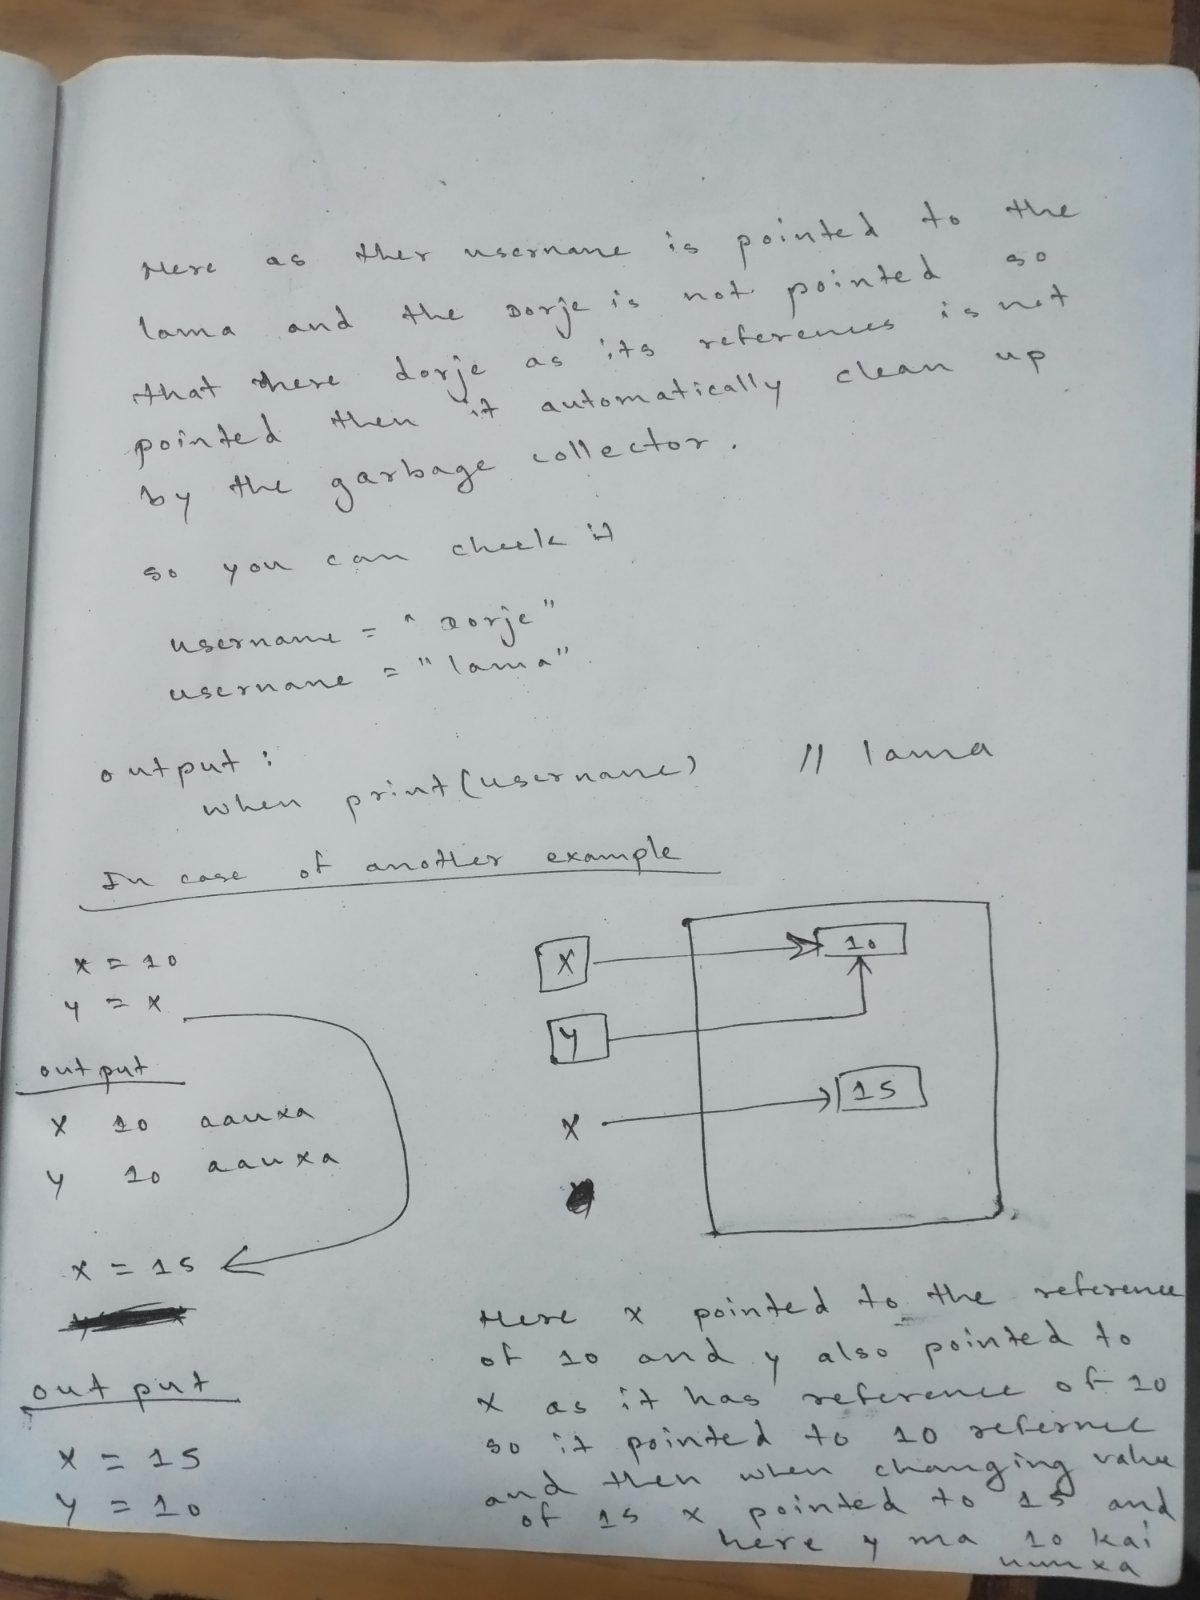 Here as ther username is pointed to the
lama and the Dorje is not pointed so
that there dorje as its references is not
pointed then it automatically clean up
by the garbage collector.
so you can check it
username = "Dorje"
username = "lama"
output:
when print(username) // lama
In case of another example
x = 10
y = x
output
x 10 aauxa
y 10 aauxa
x = 15
output
x = 15
y = 10
x
10
y
15
x
Here x pointed to the reference
of 10 and y also pointed to
x as it has reference of 10
so it pointed to 10 refernce
and then when changing value
of 15 x pointed to 15 and
here y ma 10 kai
hunxa